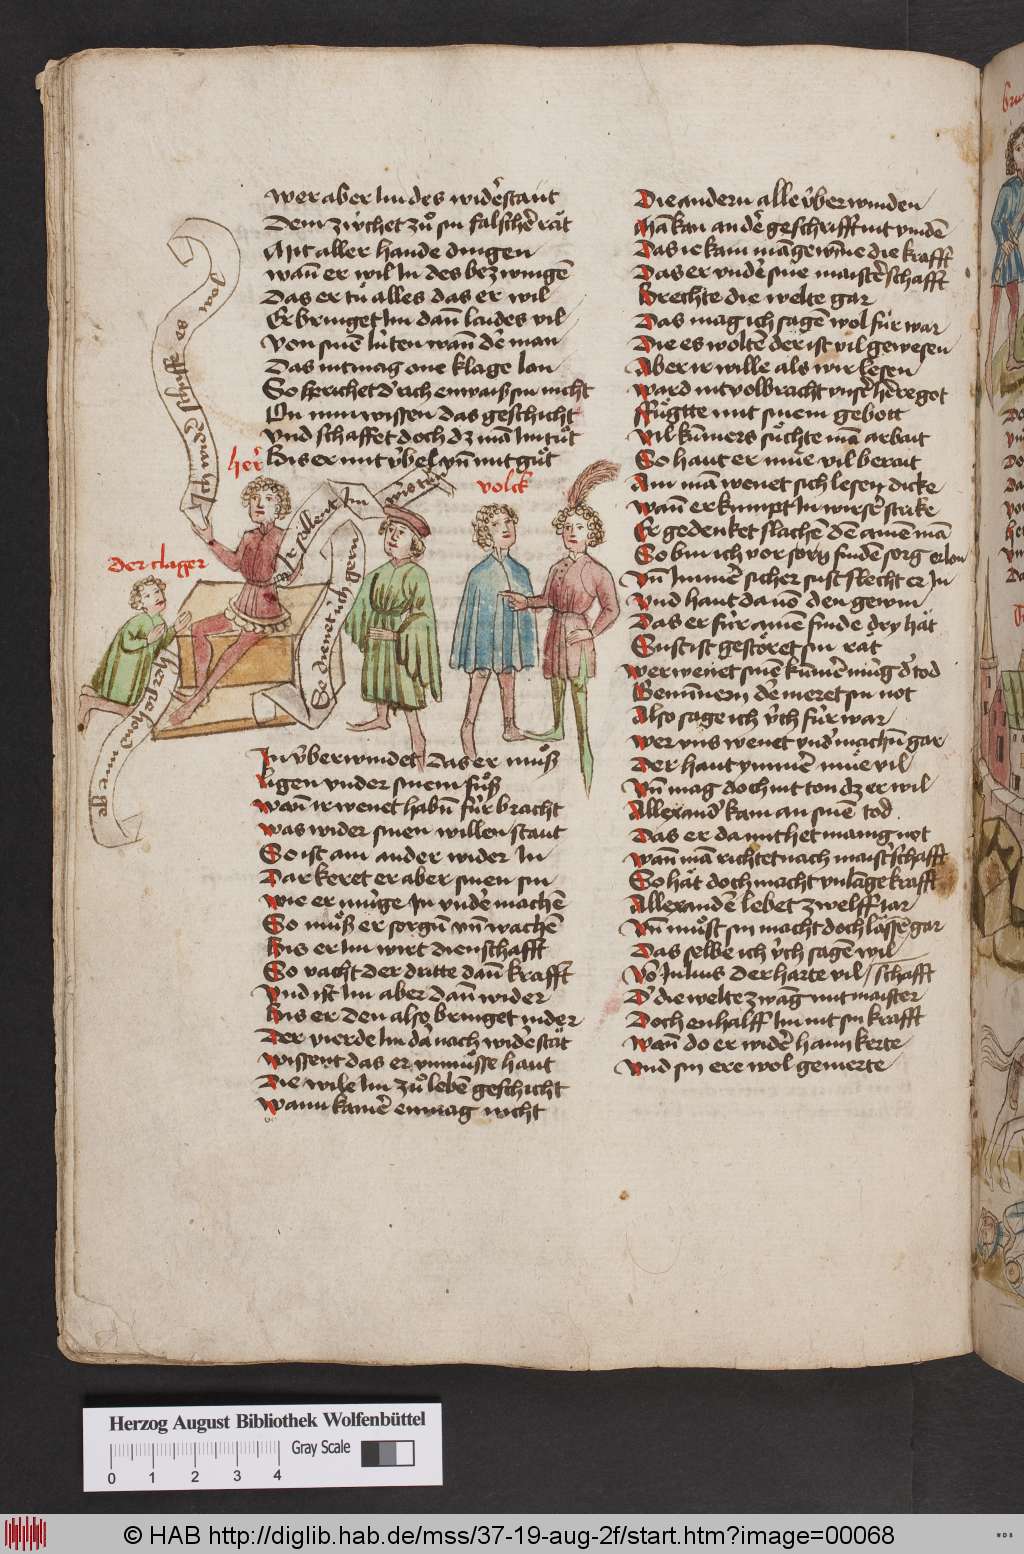 wer aber Im des widerstant
Dem zu̇chet zuͦ sin falscher rǎt
Mit aller hande dingen
wañ er wil In des bezwingē
Das er tuͤ alles das er wil
Er bringet Im dañ laides vil
Von sinē lu̇ten wañ dē man
Das nit mag one klage lan
So sprichet der ich enwaiß sin nicht
On min wissen das geschicht
vnd schaffet doch dz mā Im tuͦt
Bis er mit v̇bel vn̄ mit guͦt
her
volck
der clager
Ir sullent Im
So dienet v̇ch gern
her ge hond mine
In v̇berwindet das er muͦß
ligen vnder sinem fuͦß
wañ ir wenet habn̄ fu̇r bracht
was wider sinen willen staut
So ist ain ander wider In
Dar keret er aber sinen sin
wie er mu̇ge In vnder machē
So muͦß er sorgn̄ vn̄ wachē
Bis er Im wirt dienschafft
So vacht der dritte dañ krafft
Vnd ist Im aber dañ wider
Bis er den also bringet nider
Der vierde Im dar nach widerstǎt
wissent das er vnmuͦsse haut
Die wile Im zuͦ leben geschicht
wann kainer enmag nicht
Die andern alle v̇berwinden
Mā kan an der geschrifft nit vindē
Das ie kain mā gewinne die krafft
Das er vnder sine maisterschafft
Brechte die welte gar
Das mag ich sagē wol fu̇r war
Die es woltē der ist vil gewesen
Aber ir wille als wir lesen
ward nit volbracht vnser herre got
ffuͦgtte mit sinem gebott
Vil ku̇mers suͦchte mā arbait
So haut er in̄e vil berait
Ain mā wenet sich lesen dicke
wañ er kumpt In wirser stricke
Er gedenket slachē dē ainen mā
So bin ich vor sorg sinden sorg erlon
vn̄ Immer sicher sust slecht er In
Vnd haut da von den gewin
Das er fu̇r ainē finde dry hǎt
Sust ist gestoͤret sin rǎt
wer wenet sinē kumer mu̇g der tod
Beninnem der meret sin not
Also sage ich v̇ch fu̇r war
wer vns wenet vnder machn̄ gar
Der haut ymmer muͤe vil
vn̄ mag doch nit ton dz er wil
Allexander kam an sinē tod
Das er da mit het manig not
wañ mā richtet nach maisterschafft
So hǎt doch macht vnlāge krafft
Allexander lebet zwelff iar
Vn̄ muͦst sin macht doch lǎssē gar
Das selbe ich v̇ch sagē wil
Vō Julius der harte vil
Der die welte zwāg mit maister schafft
Doch enhalff Im nit sin krafft
wañ do er wider haim kerte
Vnd sin ere wol gemerte
Herzog August Bibliothek Wolfenbüttel
Gray Scale
0 1 2 3 4
© HAB http://diglib.hab.de/mss/37-19-aug-2f/start.htm?image=00068